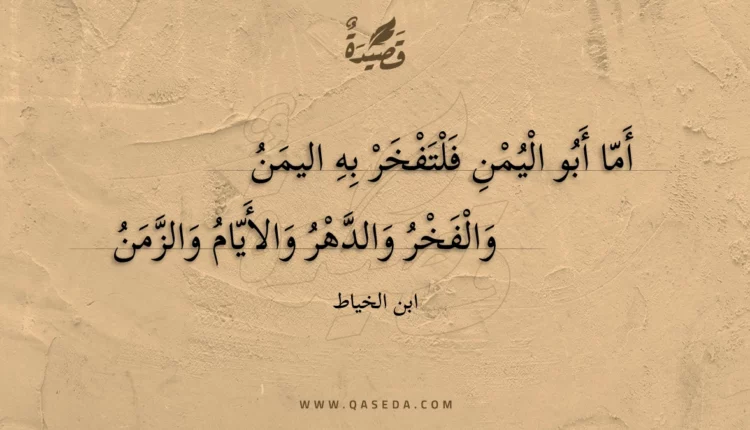 قَصِيدَةٌ
أَمّا أَبُو الْيُمْنِ فَلْتَفْخَرْ بِهِ اليمَنُ
وَالْفَخْرُ وَالدَّهْرُ وَالأَيّامُ وَالزَّمَنُ
ابن الخياط
WWW.QASEDA.COM